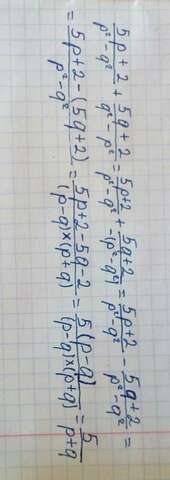 (5p+2)/(p²-q²) + (5q+2)/(q²-p²) = (5p+2)/(p²-q²) + (5q+2)/(-(p²-q²)) = (5p+2)/(p²-q²) - (5q+2)/(p²-q²) =
= (5p+2-(5q+2))/(p²-q²) = (5p+2-5q-2)/((p-q)×(p+q)) = (5(p-q))/((p-q)×(p+q)) = 5/(p+q)